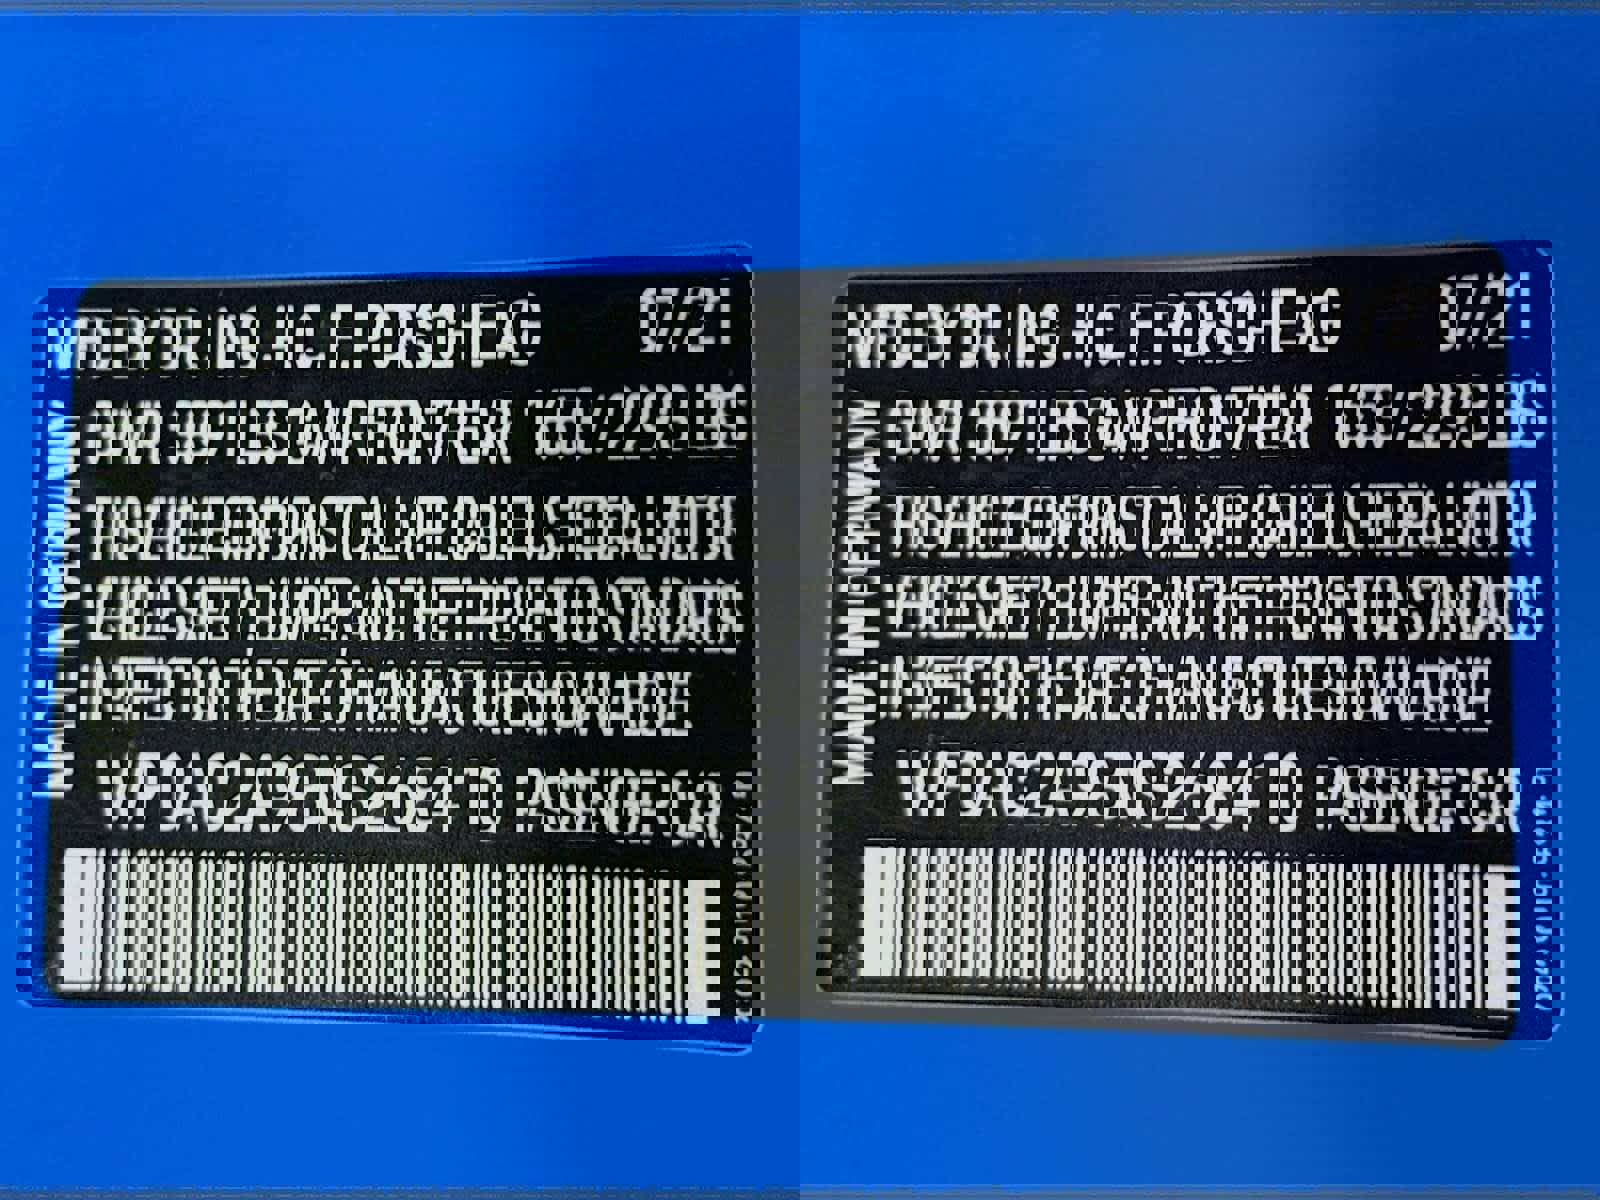 MFD. BY DR. ING. H.C. F. PORSCHE AG 07/21
GVWR LBS GAWR FRONT/REAR LBS
THIS VEHICLE CONFORMS TO ALL APPLICABLE U.S. FEDERAL MOTOR
VEHICLE SAFETY, BUMPER, AND THEFT PREVENTION STANDARDS
IN EFFECT ON THE DATE OF MANUFACTURE SHOWN ABOVE
PASSENGER CAR
MADE IN GERMANY
MFD. BY DR. ING. H.C. F. PORSCHE AG 07/21
GVWR LBS GAWR FRONT/REAR LBS
THIS VEHICLE CONFORMS TO ALL APPLICABLE U.S. FEDERAL MOTOR
VEHICLE SAFETY, BUMPER, AND THEFT PREVENTION STANDARDS
IN EFFECT ON THE DATE OF MANUFACTURE SHOWN ABOVE
PASSENGER CAR
MADE IN GERMANY